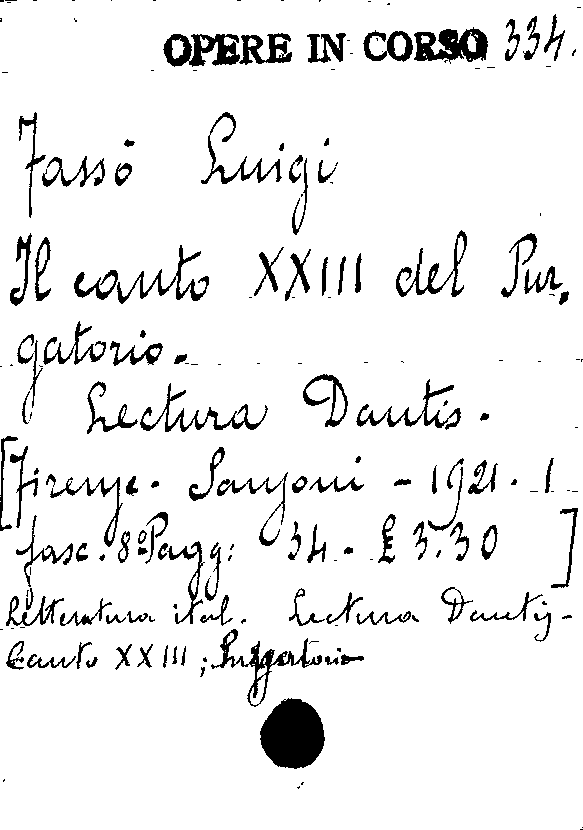 OPERE IN CORSO 334.
Fassò Luigi
Il canto XXIII del Pur-
gatorio.
Lectura Dantis.
[Firenze. Sansoni - 1921. 1
fasc. 8º Pagg: 34 - £ 3.30 ]
Letteratura ital. Lectura Dantis -
Canto XXIII; Purgatorio